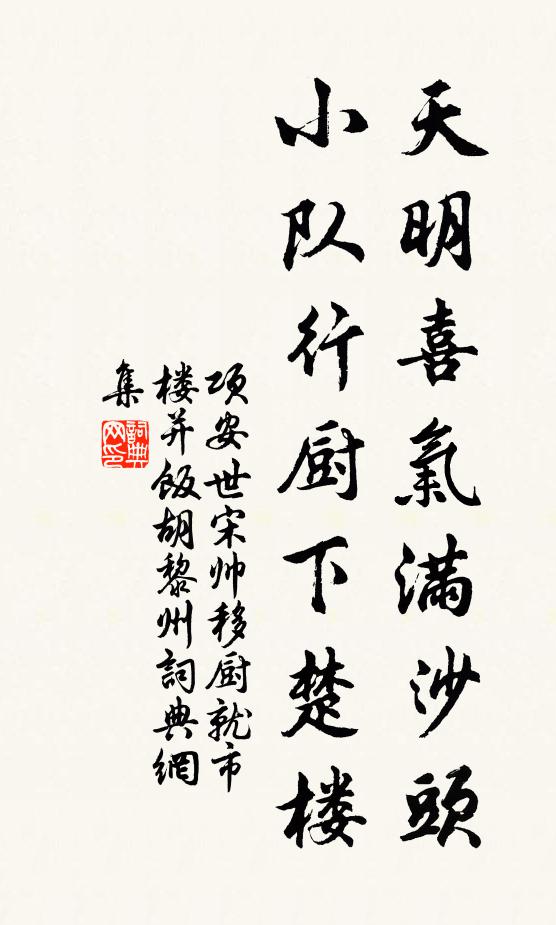 天明喜氣满沙頭
小队行厨下楚楼
项安世宋帅移厨就市
楼并饭胡黎州詞典網
集
詞典网印